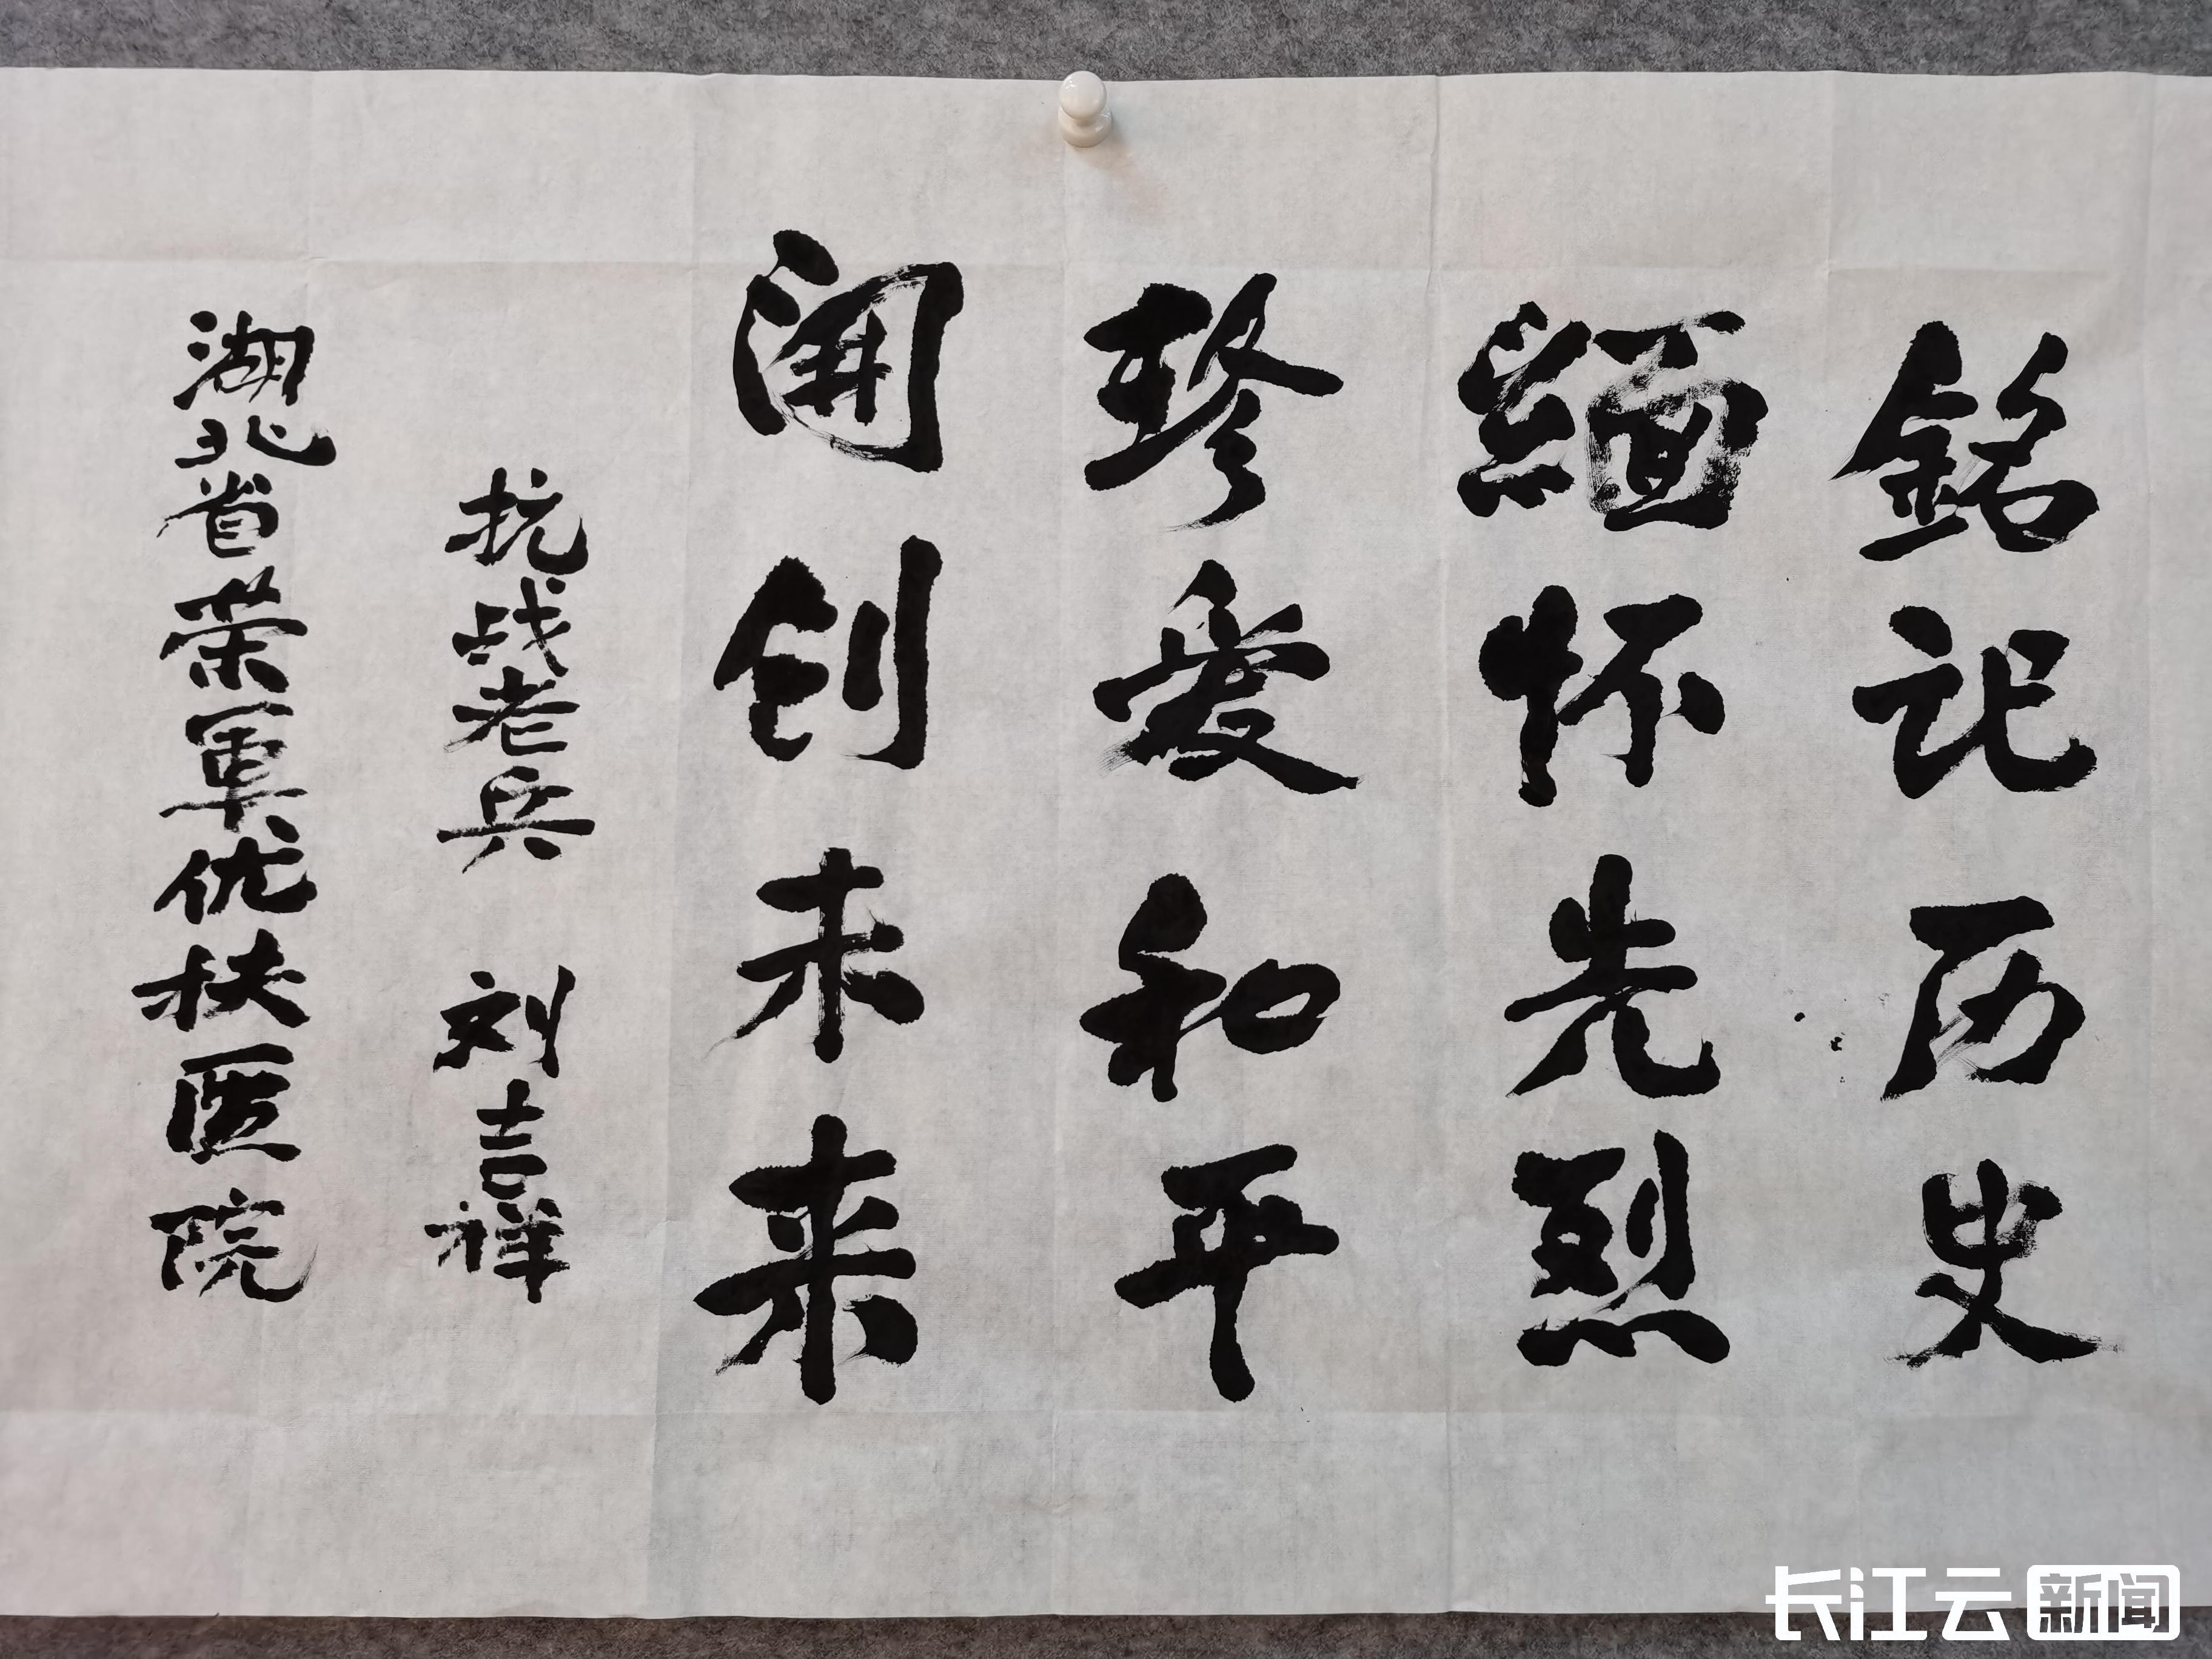 銘记历史
緬怀先烈
珍爱和平
開创未来
抗战老兵 刘吉祥
湖北省荣军优扶医院
长江云新闻